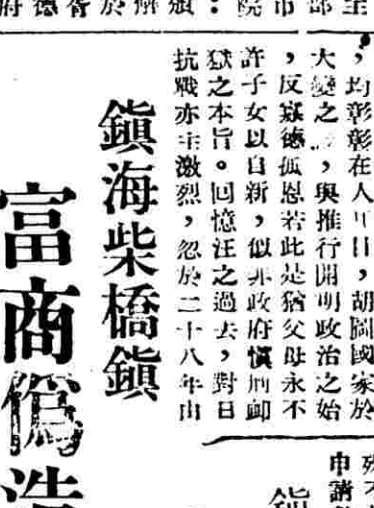 ，均彰彰在人耳目，胡圖國家於
大變之，與推行開明政治之始
，反寡德孤恩若此是猶父母永不
許子女以自新，似非政府慎刑卹
獄之本旨。回憶汪之過去，對日
抗戰亦主激烈，忽於二十八年由
鎮海柴橋鎮
富商偽造
申請